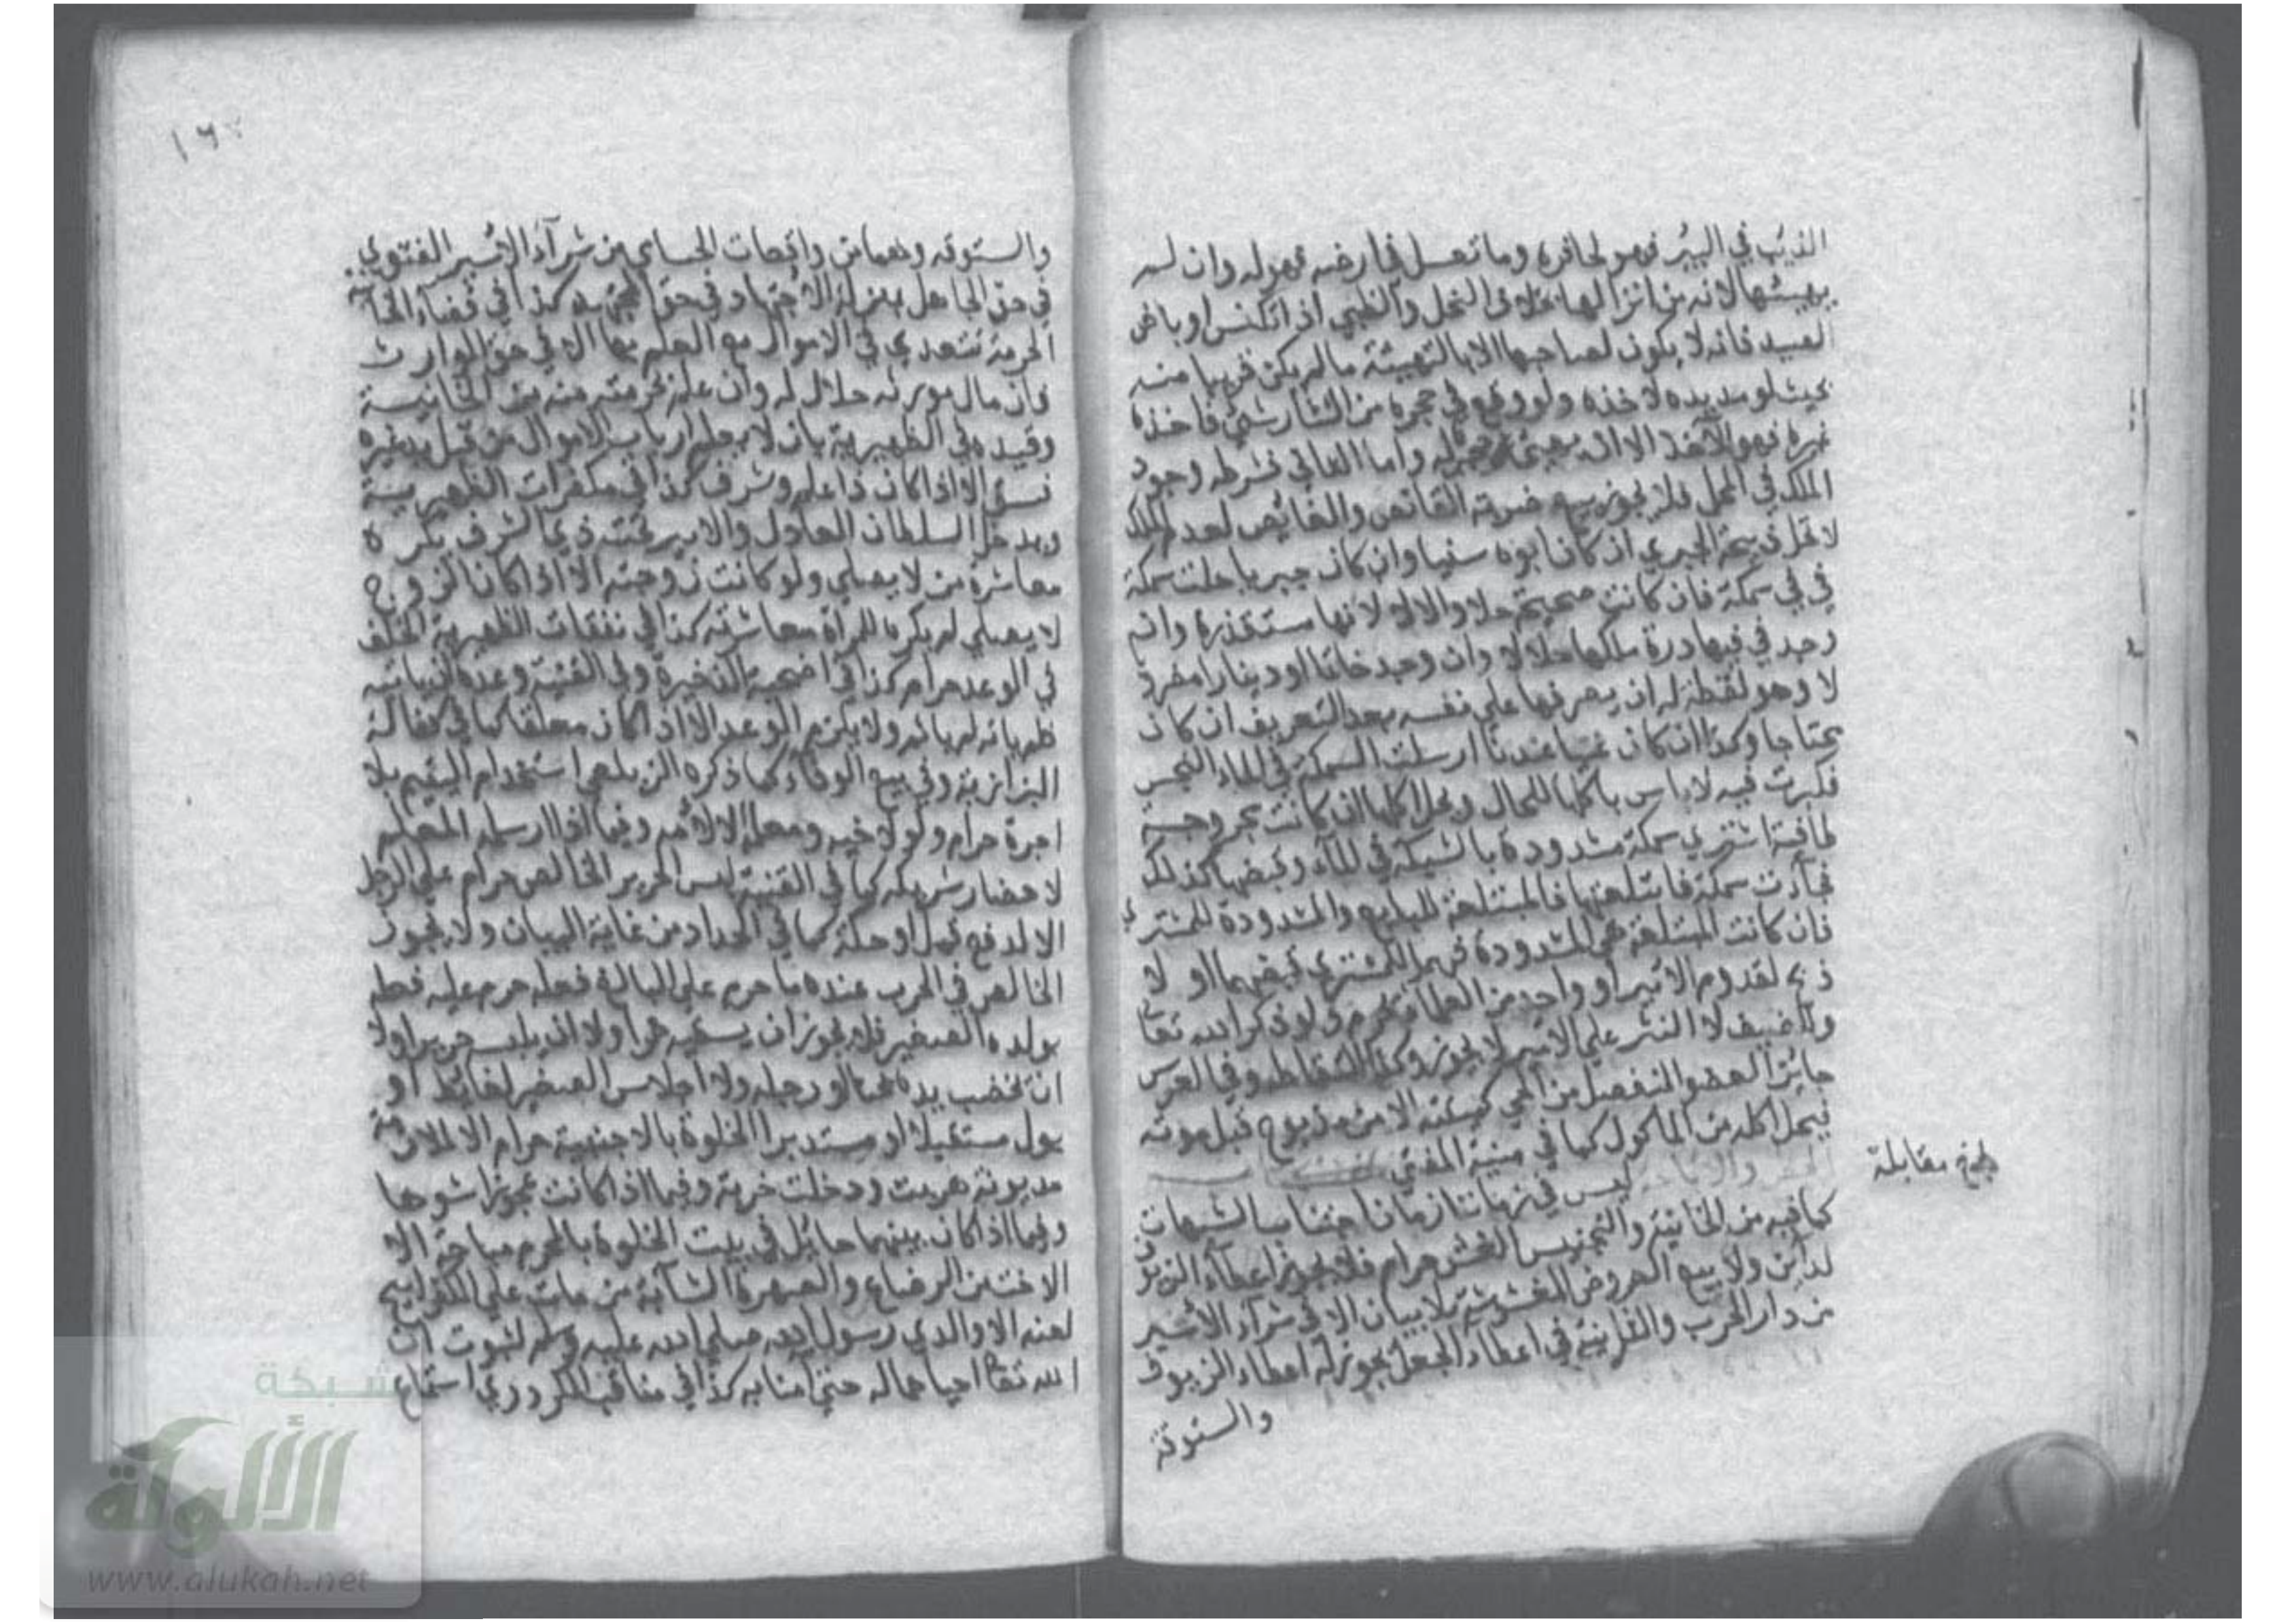 الذيب في البير فهو لحافره وما تعسل في ارضه فهو له وان لم
يهيئها لانه من انزالها بخلاف النحل والظبي اذا تكنس او باض
الصيد فانه لا يكون لصاحبها الا بالتهيئة ما لم يكن قريبا منه
بحيث لو مد يده لاخذه ولو وقع في حجره من النثار شئ فاخذه
غيره فهو للآخذ الا ان يهيئ حجره له واما الثاني فشرطه وجود
الملك في المحل فلا يجوز بيع ضربة القانص والغائص لعدم الملك
لا تحل ذبيحة الجبري ان كان ابوه سنيا وان كان جبريا حلت سمكة
في في سمكة فان كانت صحيحة حلا والا لا لانها مستقذرة وان
وجد في فيها درة ملكها حلالا وان وجد خاتما او دينارا مضروبا
لا وهو لقطة له ان يصرفها على نفسه بعد التعريف ان كان
محتاجا وكذا ان كان غنيا عندنا ارسلت السمكة في الماء النجس
فكبرت فيه لا باس باكلها للحال ويحل اكلها ان كانت مجروحة
طافية اشترى سمكة مشدودة بالشبكة في الماء وقبضها كذلك
فجآءت سمكة فابتلعتها فالمبتلعة للبايع والمشدودة للمشتري
فان كانت المبتلعة هي المشدودة فهما للمشتري قبضهما او لا
ذبح لقدوم الامير او واحد من العظما يحرم ولو ذكر الله تعا
وللضيف لا النثر على الامير لا يجوز وكذا التقاطه وفي العرس
جائز العضو المنفصل من الحي كميتته الا من مذبوح قبل موته
فيحل اكله من الماكول كما في منية المفتي
الحظر والاباحة ليس في زماننا زمان اجتناب الشبهات
بلغ مقابلة
كما فيه من الخانية والتجنيس الغش حرام فلا يجوز اعطاء الزيوف
لداين ولا بيع العروض المغشوشة بلا بيان الا في شراء الاسير
من دار الحرب والثانية في اعطاء الجعل يجوز له اعطاء الزيوف
والستوقة
١٦
والستوقه وهما من واقعات الحسامي من شرآء الاسير الفتوى
في حق الجاهل بمنزلة الاجتهاد في حق المجتهد كذا في قضاء الخانية
الحرمة تتعدى في الاموال مع العلم بها الا في حق الوارث
فان مال مورثه حلال له وان علم بحرمته منه من الخانية
وقيده في الظهيرية بان لا يعلم ارباب الاموال من قبل يد غيره
فسق الا اذا كان ذا علم وشرف كذا في مكفرات الظهيرية
ويدخل السلطان العادل والامير تحت ذي الشرف يكره
معاشرة من لا يصلي ولو كانت زوجته الا اذا كان الزوج
لا يصلي لم يكره للمراة معاشرته كذا في نفقات الظهيرية الخلف
في الوعد حرام كذا في اضحية الذخيرة وفي القنية وعده ان ياتيه
فلم ياته لم ياثم ولا يلزم الوعد الا اذا كان معلقا كما في كفالة
البزازية وفي بيع الوفاء كما ذكره الزيلعي استخدام اليتيم بلا
اجرة حرام ولو لاخيه ومعلمه الا لامه وفيما اذا ارسله المعلم
لاحضار شريكه كما في القنية لبس الحرير الخالص حرام على الرجل
الا لدفع قمل او حكة كما في الحداد من غاية البيان ولا يجوز
الخالص في الحرب عنده ما حرم على البالغ فعله حرم عليه فعله
بولده الصغير فلا يجوز ان يسقيه خمرا ولا ان يلبسه حريرا ولا
ان يخضب يده بحنا او رجله ولا اجلاس الصغير لغائط او
بول مستقبلا او مستدبرا الخلوة بالاجنبية حرام الا لملازمة
مديونة هربت ودخلت خربة وفيما اذا كانت عجوزا شوها
وفيما اذا كان بينهما حائل في بيت الخلوة بالمحرم مباحة الا
الاخت من الرضاع والصهرة الشابة من مات على الكفر ابيح
لعنه الا والدي رسول الله صلى الله عليه وسلم لثبوت ان
الله تعا احياهما له حتى امنا به كذا في مناقب الكردري استماع
شبكة
الألوكة
www.alukah.net